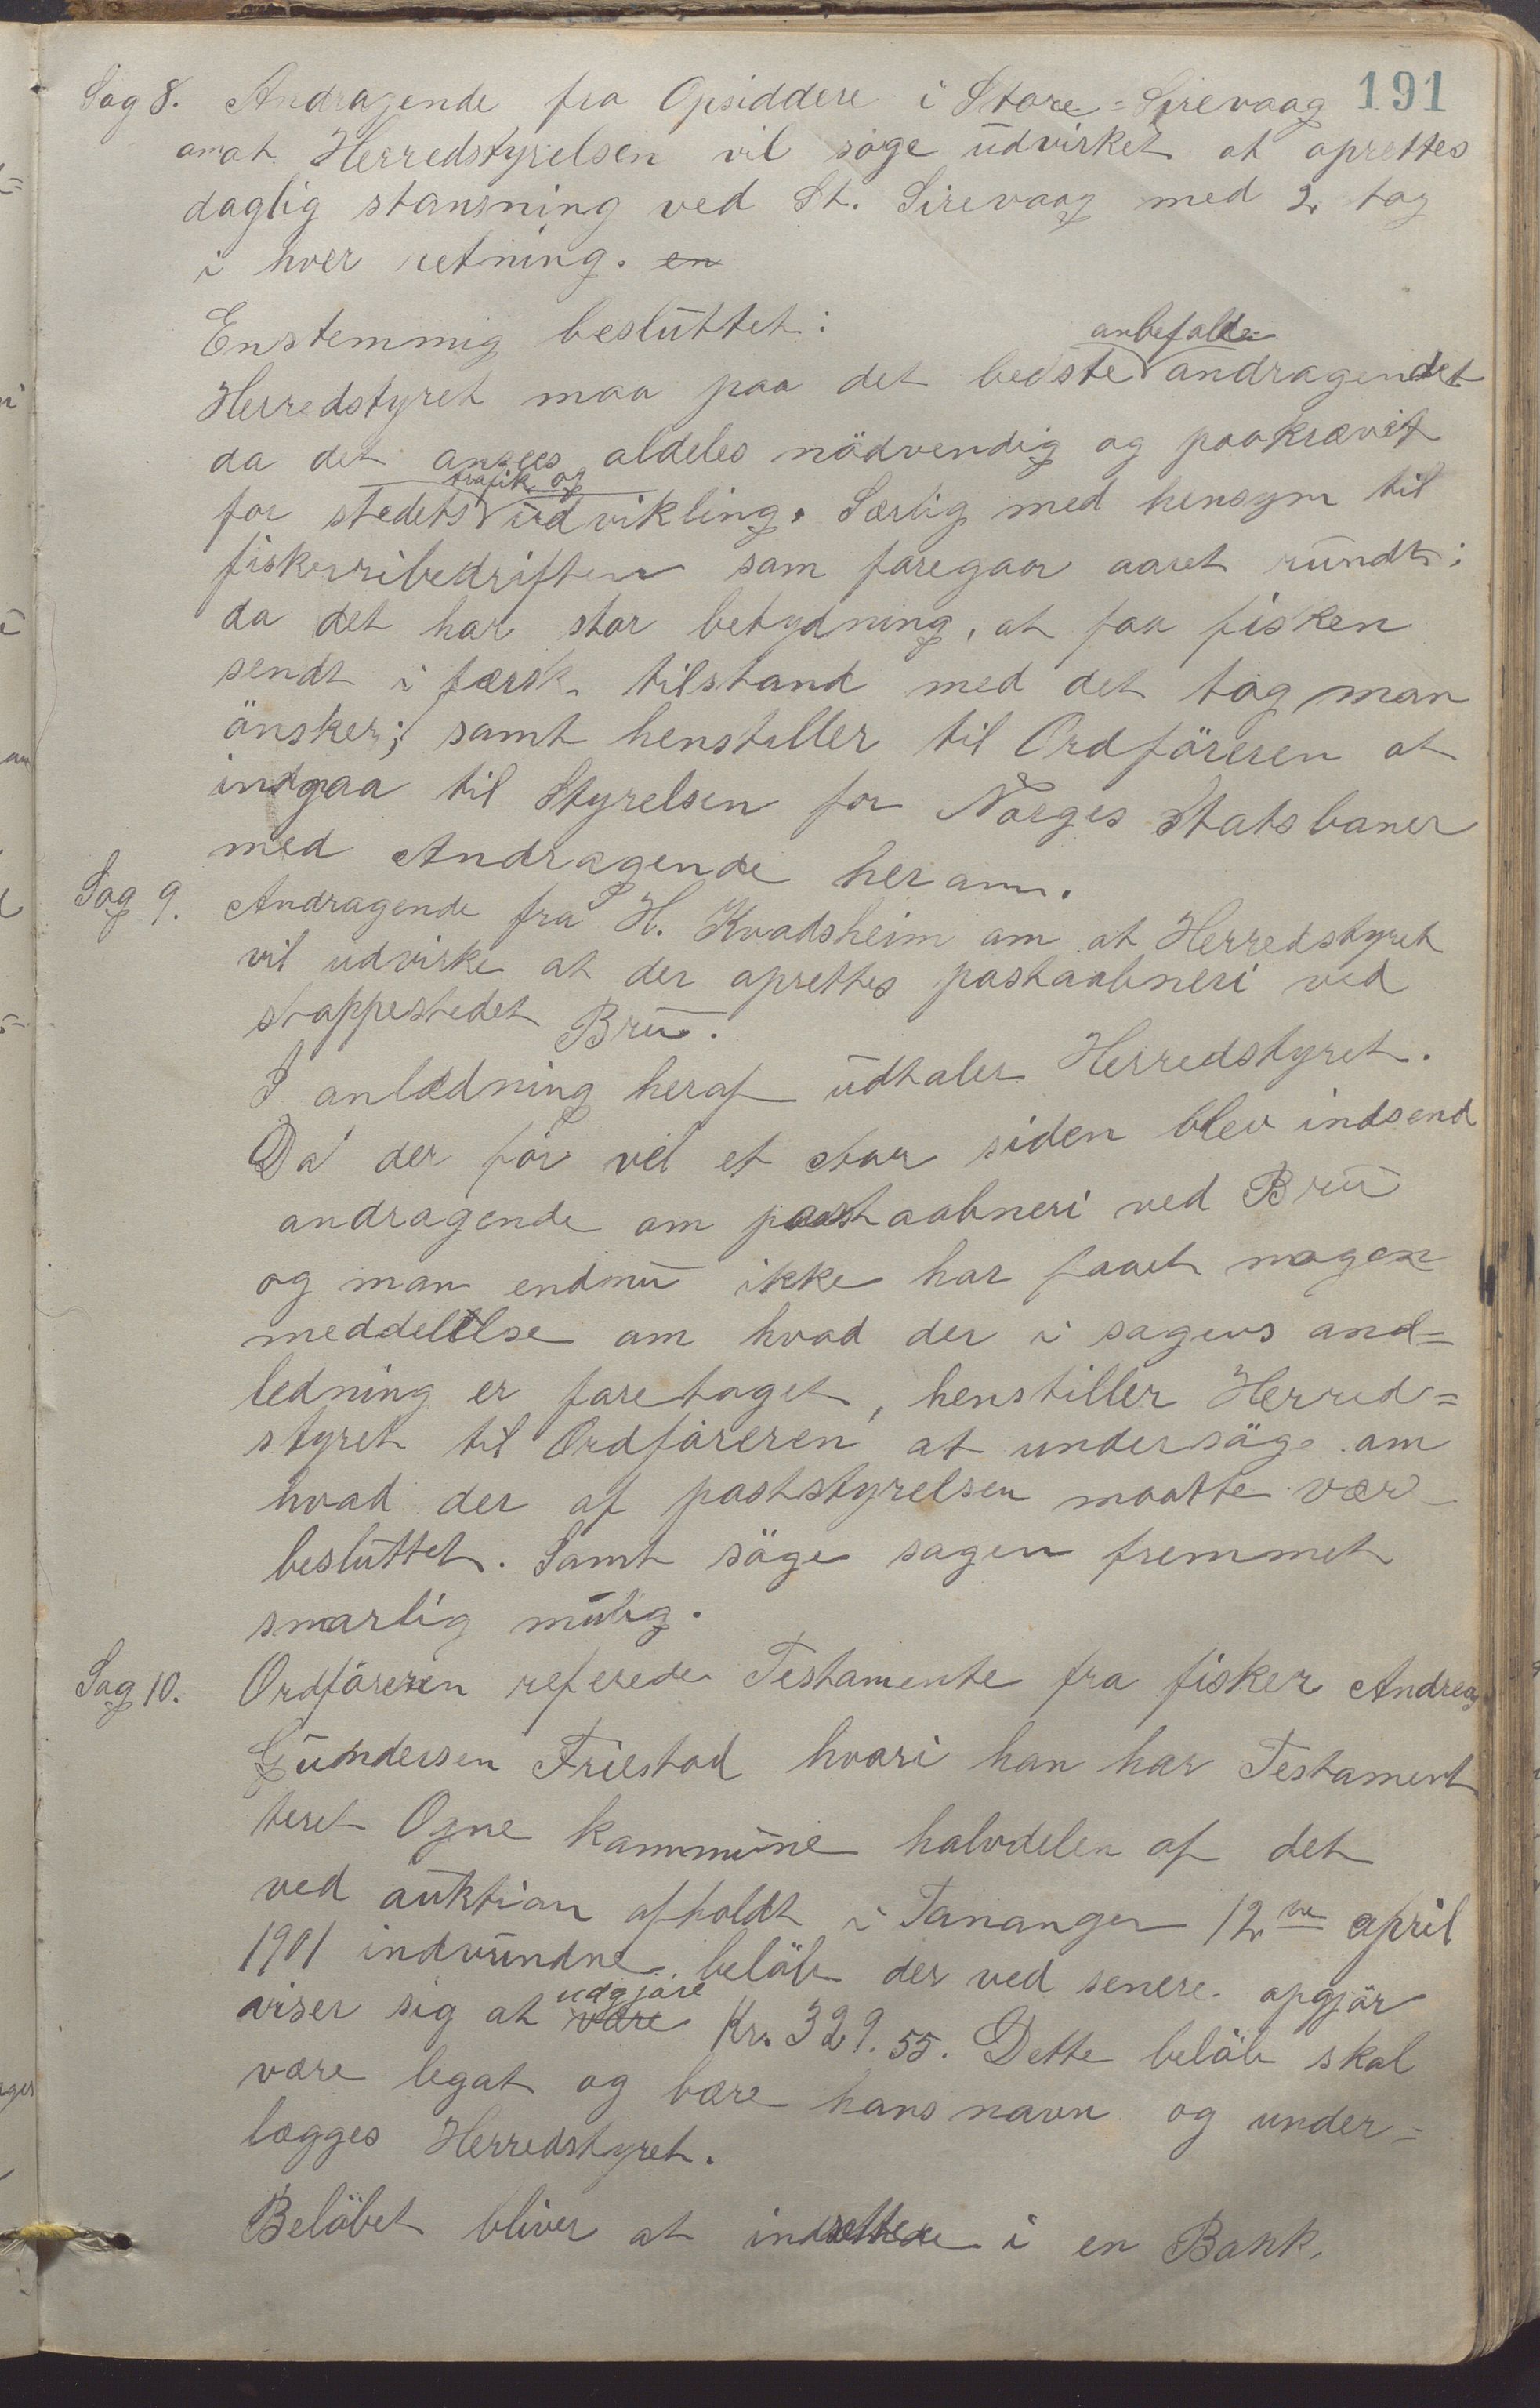 191
Sag 8. Andragende fra Opsiddere i Store=Sirevaag
om at Herredstyrelsen vil söge udvirket at oprettes
daglig stansning ved St. Sirevaag med 2 tog
i hver retning. en
Enstemmig besluttet:
anbefalde
Herredstyret maa paa det bedste andragendet
da det ansees aldeles nödvendig og paakrævet
trafik og
for stedets udvikling. Særlig med hensyn til
fiskerribedriften som foregaar aaret rundt;
da det har stor betydning, at faa fisken
sendt i færsk tilstand med det tog man
önsker; samt henstiller til Ordföreren at
indgaa til Styrelsen for Norges Statsbaner
med Andragende herom.
Sag 9. Andragende fra H. Kvadsheim om at Herredstyret
vil udvirke at der oprettes postaabneri ved
stoppestedet Bru.
I anledning heraf udtaler Herredstyret.
Da der för vel et aar siden blev indsend
andragende om postaabneri ved Bru
og man endnu ikke har faaet nogen
meddelelse om hvad der i sagens and=
ledning er foretaget, henstiller Herred=
styret til Ordföreren at undersöge om
hvad der af poststyrelsen maatte vær
besluttet. Samt söge sagen fremmet
snarlig mulig.
Sag 10. Ordföreren referede Testamente fra fisker Andreas
Gundersen Friestad hvori han har Testament
teret Ogne kommune halvdelen af det
ved auktion afholdt i Tananger 12te april
1901 indvundne belöb der ved senere opgjör
udgjöre
viser sig at være Kr. 329.55. Dette belöb skal
være legat og bære hans navn og under=
lægges Herredstyret.
Belöbet bliver at indsættes i en Bank.